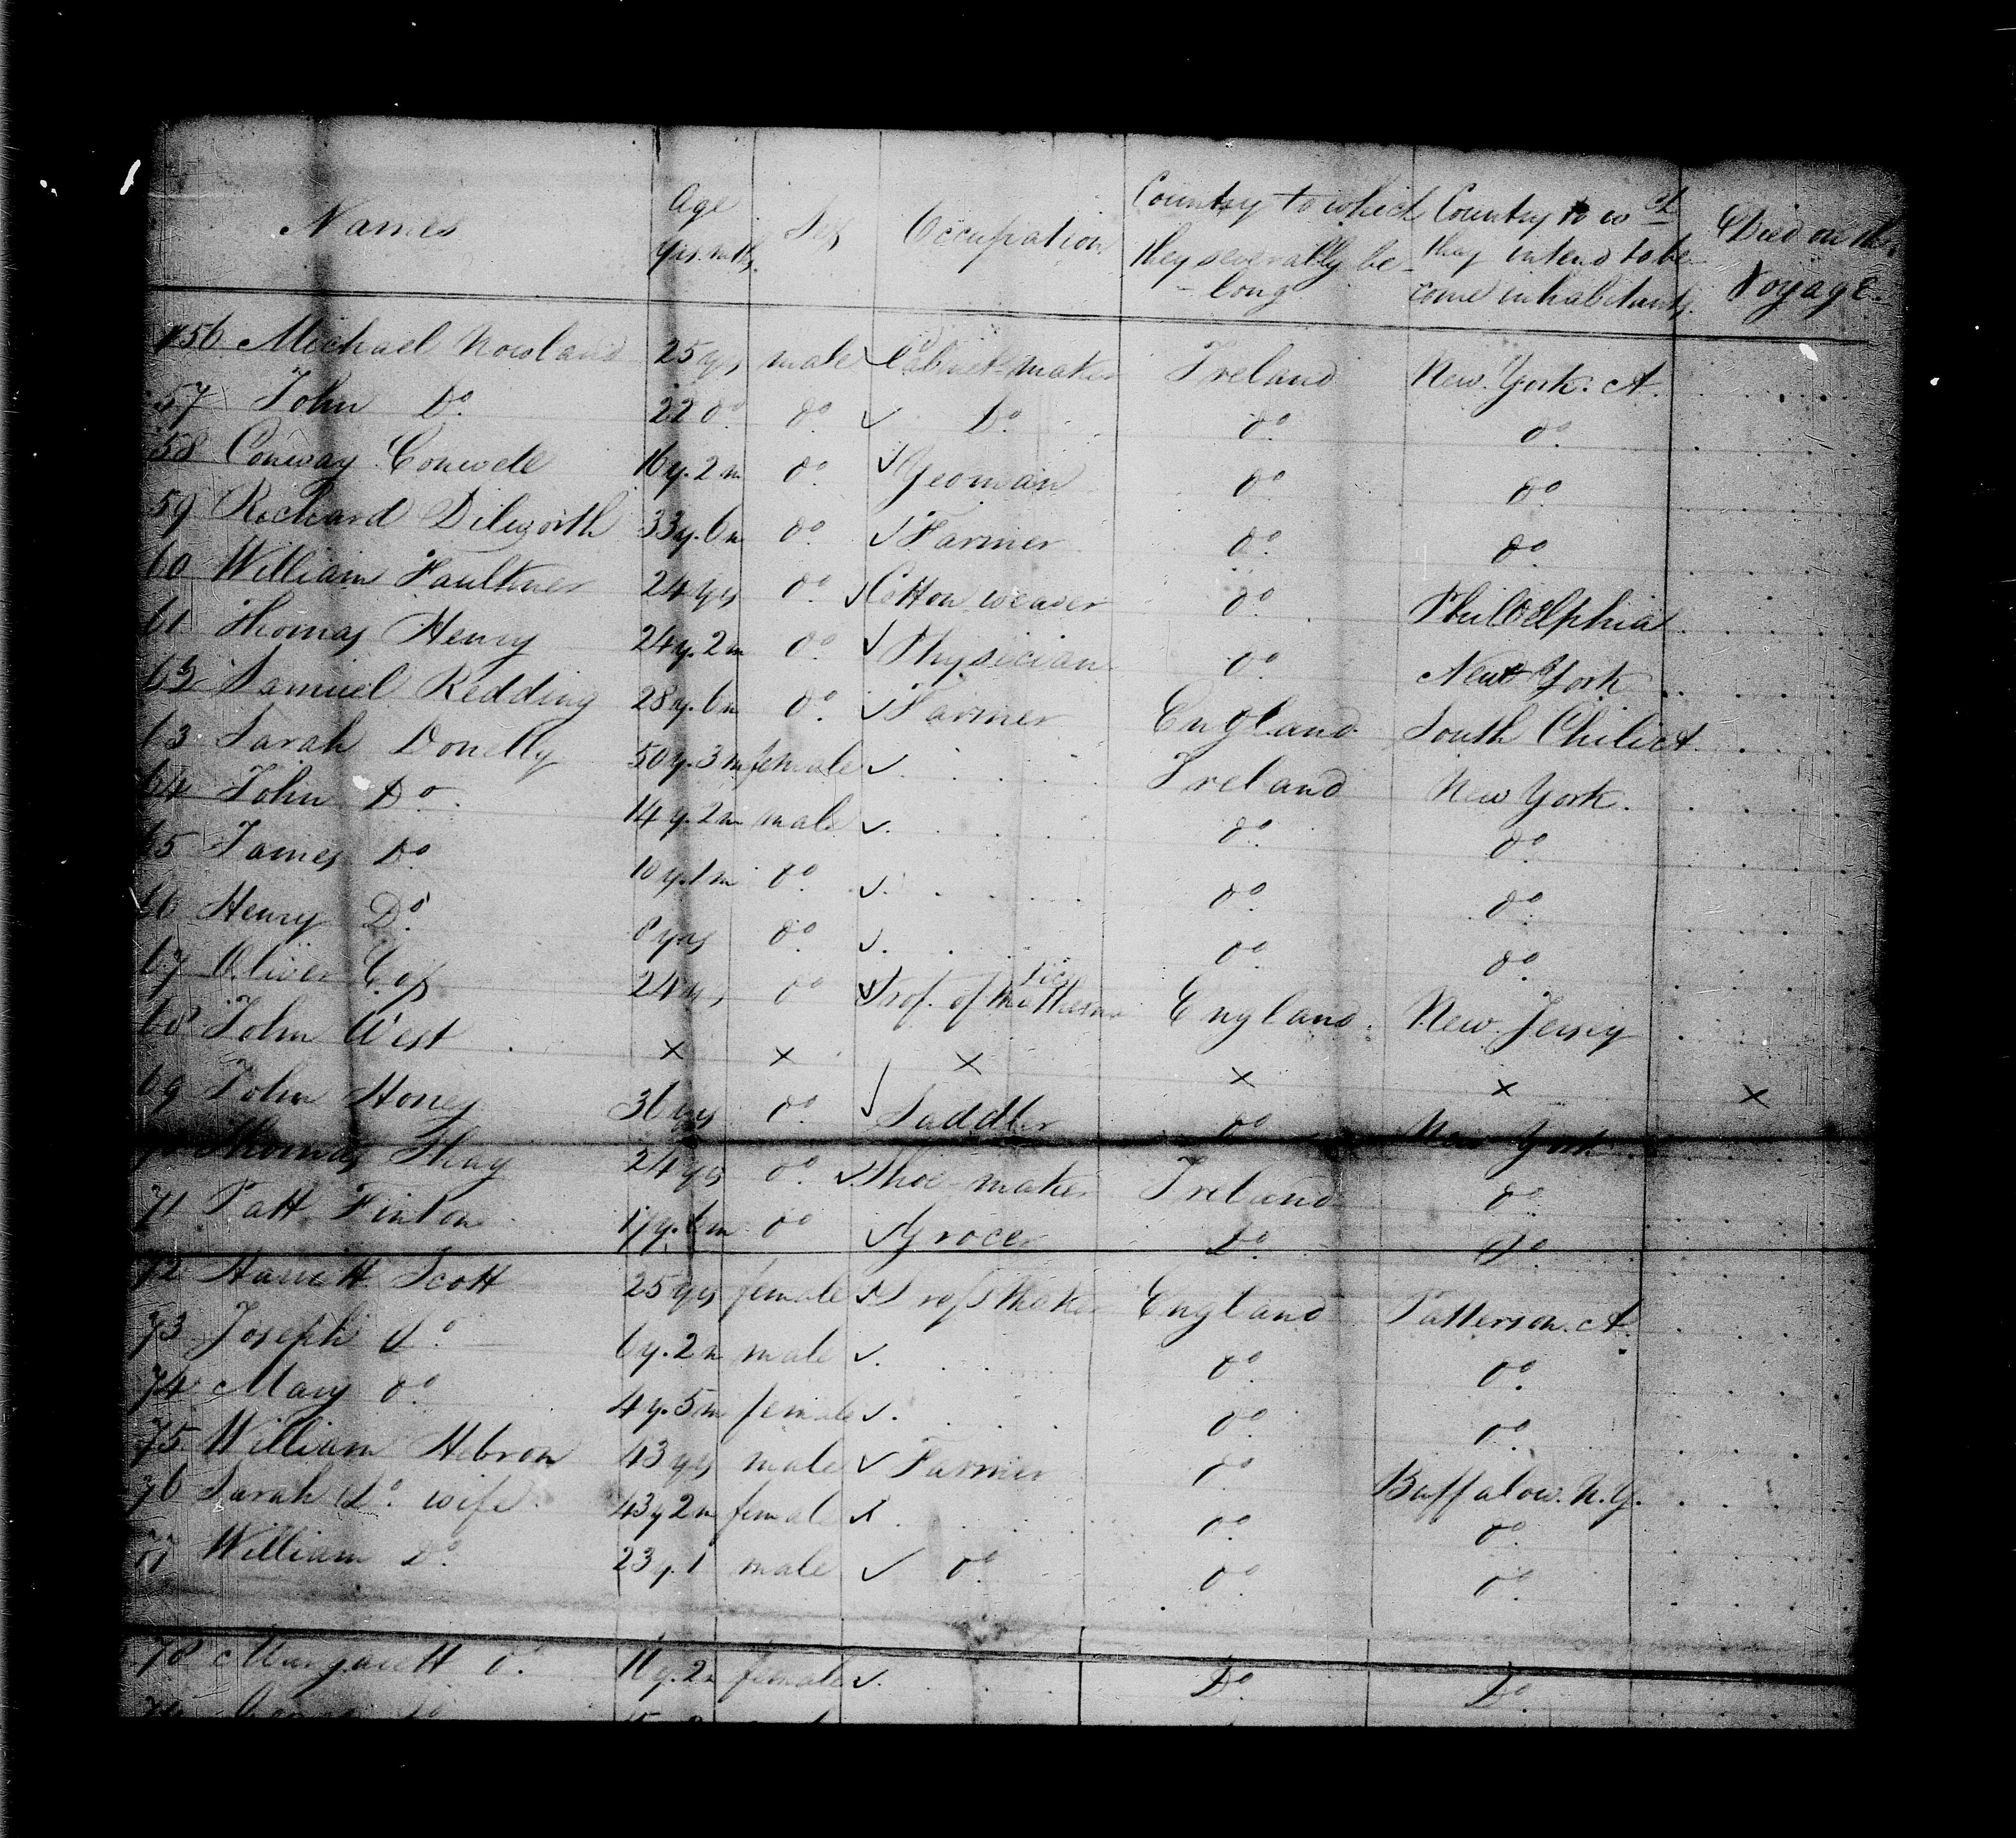 Names Age yrs. mths. Sex Occupation Country to which they severally be-long Country to wch they intend to be-come inhabitants Died on the Voyage
56 Michael Nowland 25 yrs male Cabinet maker Ireland New York. A
57 John Do. 22 do. do. Do. do. do.
58 Conway 16 y. 2 m do. Yeoman do. do
59 Richard Dilworth 33 y. 6 m do. Farmer do. do.
60 William Faulkner 24 yrs do. Cotton weaver do Philadelphia
61 Thomas Henry 24 y. 2 m do. Physician do. New York
62 Samuel Redding 28 y. 6 m do. Farmer England South
63 Sarah Donelly 50 y. 3 m female Ireland New York.
64 John Do. 14 y. 2 m male do. do.
65 James Do 10 y. 1 m do. do. do.
66 Henry Do. 8 yrs do. do do.
67 Oliver 24 yrs do Prof. of Mathematics England New Jersey
68 John West x x x x x x
69 John Hones 36 yrs do. Saddler do New York
70 Thomas Shay 24 yrs do. Shoe-maker Ireland do.
71 Patt Finton 17 y. 6 m do Grocer Do. do.
72 Harriett Scott 25 yrs female Dress Maker England Patterson. A
73 Joseph do. 6 y. 2 m male do. do.
74 Mary do. 4 y. 5 m female do. do.
75 William Hebron 43 yrs male Farmer do. Buffalow. N.Y.
76 Sarah Do. wife 43 y 2 m female do. do.
77 William Do. 23 y. 1 male do. do. do.
78 Margarett do. 11 y. 2 m female Do. Do.